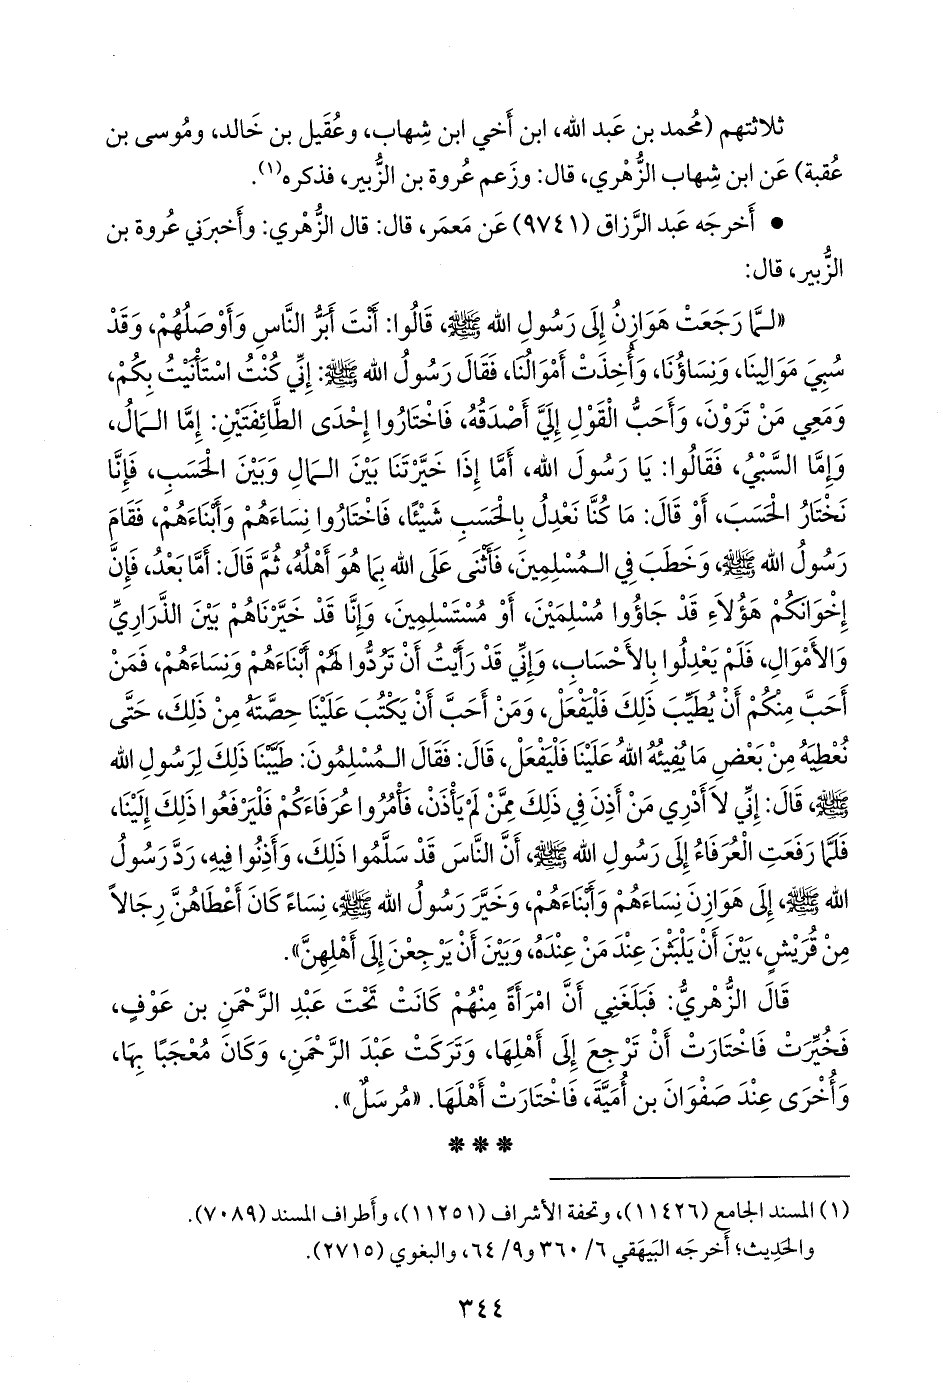 ثلاثتهم (مُحمد بن عَبد الله، ابن أَخي ابن شِهاب، وعُقَيل بن خَالد، ومُوسى بن
عُقبة) عَن ابن شِهاب الزُّهْري، قال: وزَعم عُروة بن الزُّبير، فذكره(١).
• أَخرجَه عَبد الرَّزاق (٩٧٤١) عَن مَعمَر، قال: قال الزُّهْري: وأَخبرَني عُروة بن
الزُّبير، قال:
«لـمَّا رَجَعَتْ هَوَازِنُ إِلَى رَسُولِ الله ﷺ، قَالُوا: أَنْتَ أَبَرُّ النَّاسِ وَأَوْصَلُهُمْ، وَقَدْ
سُبِيَ مَوَالِينَا، وَنِسَاؤُنَا، وَأُخِذَتْ أَمْوَالُنَا، فَقَالَ رَسُولُ الله ﷺ: إِنِّي كُنْتُ اسْتَأْنَيْتُ بِكُمْ،
وَمَعِي مَنْ تَرَوْنَ، وَأَحَبُّ الْقَوْلِ إِلَيَّ أَصْدَقُهُ، فَاخْتَارُوا إِحْدَى الطَّائِفَتَيْنِ: إِمَّا الـمَالُ،
وَإِمَّا السَّبْيُ، فَقَالُوا: يَا رَسُولَ الله، أَمَّا إِذَا خَيَّرْتَنَا بَيْنَ الـمَالِ وَبَيْنَ الْحَسَبِ، فَإِنَّا
نَخْتَارُ الْحَسَبَ، أَوْ قَالَ: مَا كُنَّا نَعْدِلُ بِالْحَسَبِ شَيْئًا، فَاخْتَارُوا نِسَاءَهُمْ وَأَبْنَاءَهُمْ، فَقَامَ
رَسُولُ الله ﷺ، وَخَطَبَ فِي الـمُسْلِمِينَ، فَأَثْنَى عَلَى الله بِمَا هُوَ أَهْلُهُ، ثُمَّ قَالَ: أَمَّا بَعْدُ، فَإِنَّ
إِخْوَانَكُمْ هَؤُلَاءِ قَدْ جَاؤُوا مُسْلِمَيْنَ، أَوْ مُسْتَسْلِمِينَ، وَإِنَّا قَدْ خَيَّرْنَاهُمْ بَيْنَ الذَّرَارِيِّ
وَالأَمْوَالِ، فَلَمْ يَعْدِلُوا بِالأَحْسَابِ، وَإِنِّي قَدْ رَأَيْتُ أَنْ تَرُدُّوا لَهُمْ أَبْنَاءَهُمْ وَنِسَاءَهُمْ، فَمَنْ
أَحَبَّ مِنْكُمْ أَنْ يُطَيِّبَ ذَلِكَ فَلْيَفْعَلْ، وَمَنْ أَحَبَّ أَنْ يَكْتُبَ عَلَيْنَا حِصَّتَهُ مِنْ ذَلِكَ، حَتَّى
نُعْطِيَهُ مِنْ بَعْضِ مَا يُفِيئُهُ اللهُ عَلَيْنَا فَلْيَفْعَلْ، قَالَ: فَقَالَ الـمُسْلِمُونَ: طَيَّبْنَا ذَلِكَ لِرَسُولِ الله
ﷺ، قَالَ: إِنِّي لَا أَدْرِي مَنْ أَذِنَ فِي ذَلِكَ مِمَّنْ لَمْ يَأْذَنْ، فَأْمُرُوا عُرَفَاءَكُمْ فَلْيَرْفَعُوا ذَلِكَ إِلَيْنَا،
فَلَمَّا رَفَعَتِ الْعُرَفَاءُ إِلَى رَسُولِ الله ﷺ، أَنَّ النَّاسَ قَدْ سَلَّمُوا ذَلِكَ، وَأَذِنُوا فِيهِ، رَدَّ رَسُولُ
الله ﷺ، إِلَى هَوَازِنَ نِسَاءَهُمْ وَأَبْنَاءَهُمْ، وَخَيَّرَ رَسُولُ الله ﷺ، نِسَاءً كَانَ أَعْطَاهُنَّ رِجَالاً
مِنْ قُرَيْشٍ، بَيْنَ أَنْ يَلْبَثْنَ عِنْدَ مَنْ عِنْدَهُ، وَبَيْنَ أَنْ يَرْجِعْنَ إِلَى أَهْلِهِنَّ».
قَالَ الزُّهْرِيُّ: فَبَلَغَنِي أَنَّ امْرَأَةً مِنْهُمْ كَانَتْ تَحْتَ عَبْدِ الرَّحْمَنِ بن عَوْفٍ،
فَخُيِّرَتْ فَاخْتَارَتْ أَنْ تَرْجِعَ إِلَى أَهْلِهَا، وَتَرَكَتْ عَبْدَ الرَّحْمَنِ، وَكَانَ مُعْجَبًا بِهَا،
وَأُخْرَى عِنْدَ صَفْوَانَ بن أُمَيَّةَ، فَاخْتَارَتْ أَهْلَهَا. «مُرسَلٌ».
***
(١) المسند الجامع (١١٤٢٦)، وتحفة الأشراف (١١٢٥١)، وأَطراف المسند (٧٠٨٩).
والحَدِيث؛ أَخرجَه البَيهَقي ٦/ ٣٦٠ و٩/ ٦٤، والبغوي (٢٧١٥).
٣٤٤